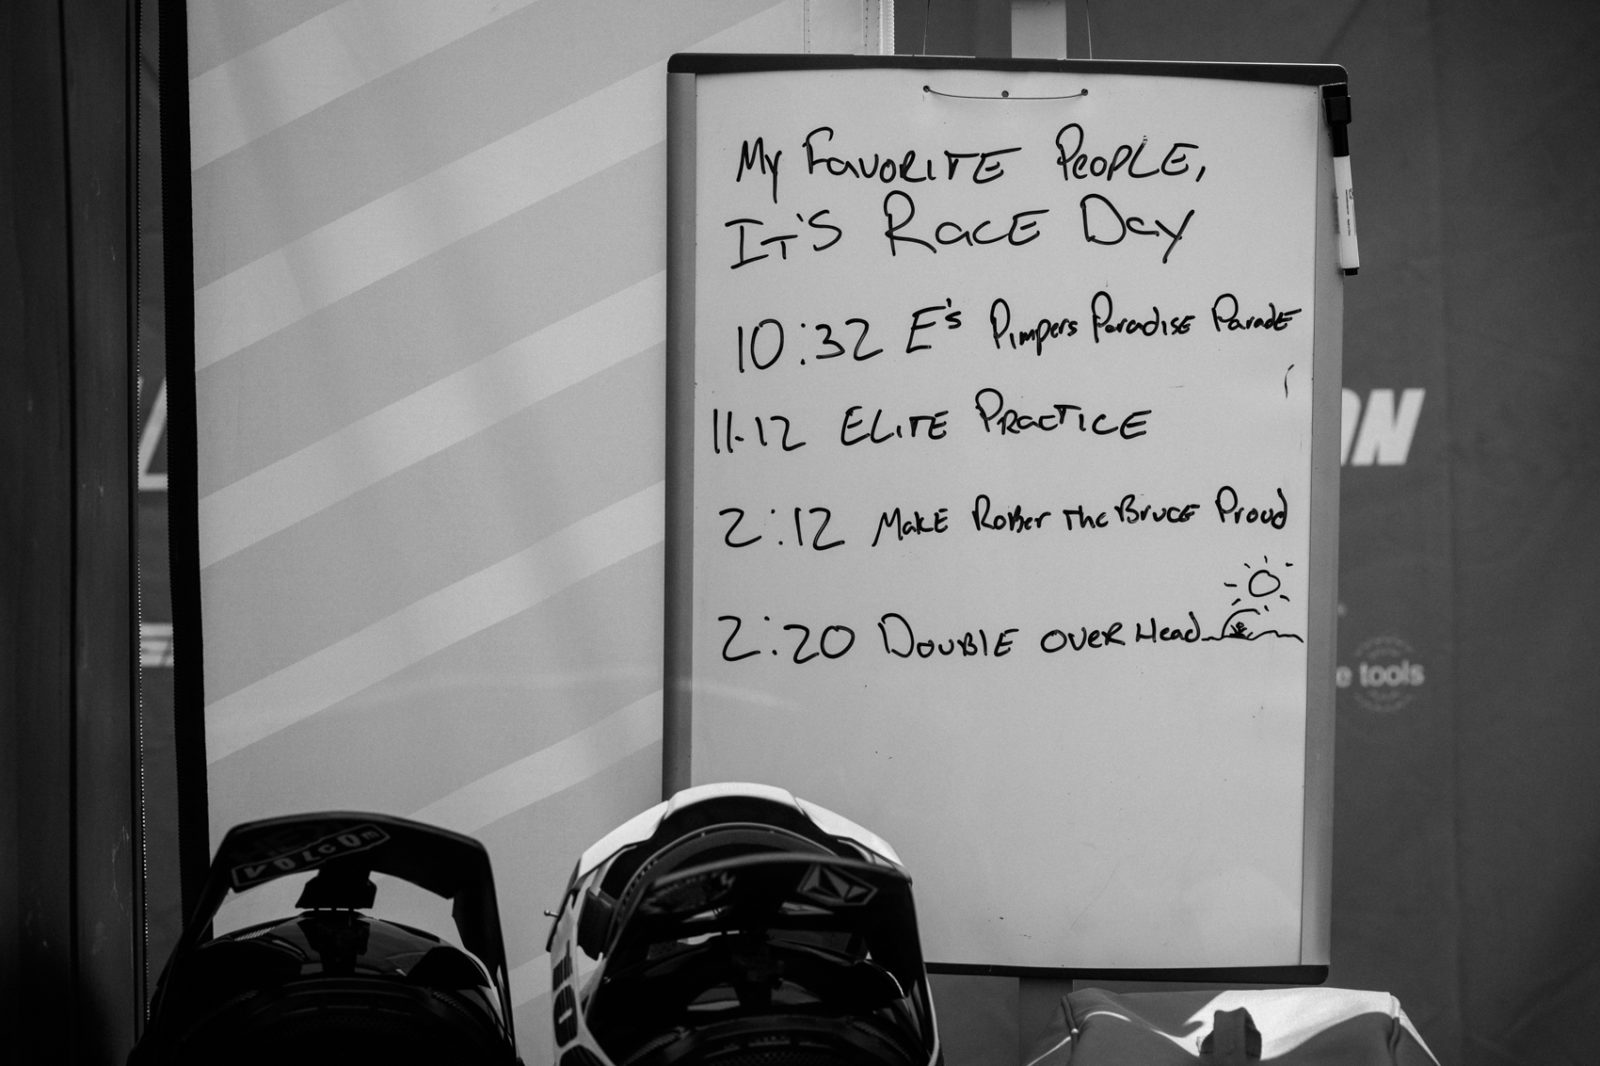 My FavORITE PEOPLE,
IT'S RacE Day
10:32 E's Pimpers ParadisE ParadE
11:12 ELITE PRacTICE
2:12 MakE RoBer The BrucE Proud
2:20 DouBlE overHead
ON
e tools
VOLCOM